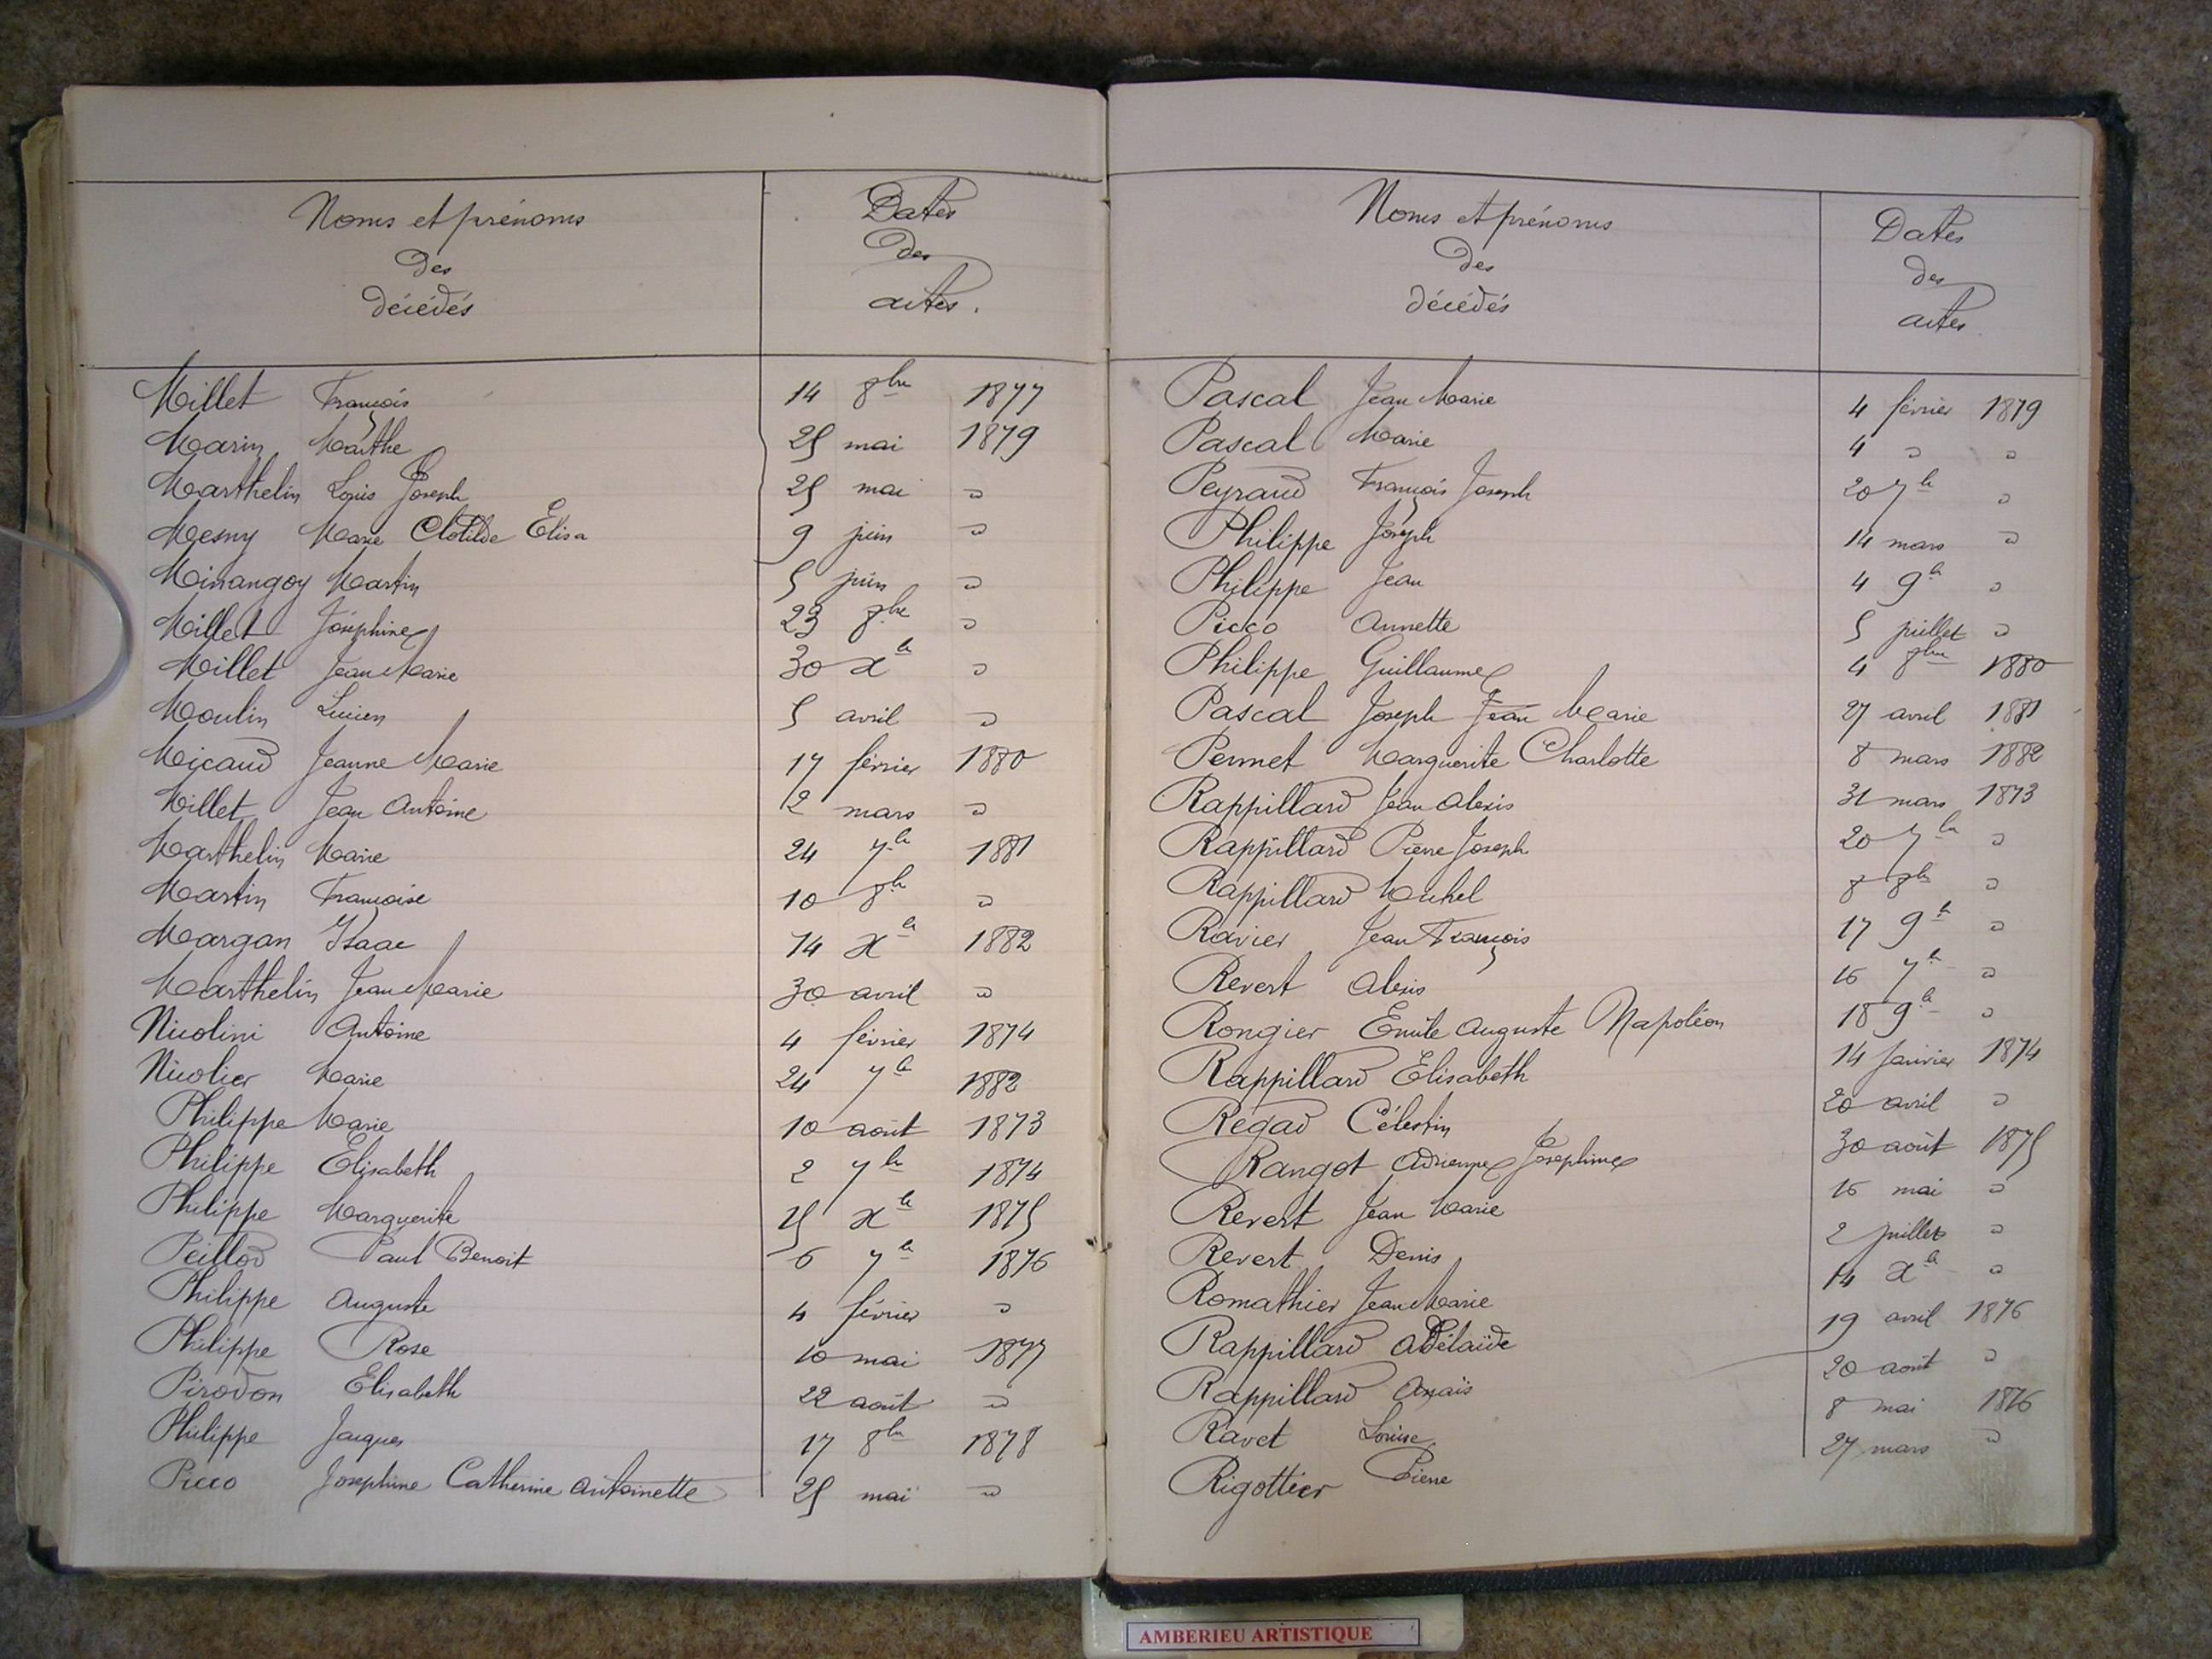 Noms et prénoms
des
décédés
Dates
des
actes.
Millet François 14 8bre 1877
Marin Marthe 25 mai 1879
Marthelin Louis Joseph 25 mai "
Mesmy Marie Clotilde Elisa 9 juin "
Minangoy Martin 5 juin "
Millet Joséphine 23 8bre "
Millet Jean Marie 30 xbre "
Moulin Lucien 5 avril "
Micaud Jeanne Marie 17 février 1880
Millet Jean Antoine 2 mars "
Marthelin Marie 24 7bre 1881
Martin Françoise 10 8bre "
Margan Isaac 14 xbre 1882
Marthelin Jean Marie 30 avril "
Nicolini Antoine 4 février 1874
Nicolier Marie 24 7bre 1882
Philippe Marie 10 août 1873
Philippe Elisabeth 2 7bre 1874
Philippe Marguerite 25 xbre 1875
Peillod Paul Benoit 6 7bre 1876
Philippe Auguste 4 février "
Philippe Rose 10 mai 1877
Pirodon Elisabeth 22 août "
Philippe Jacques 17 8bre 1878
Picco Josephine Catherine Antoinette 25 mai "
Noms et prénoms
des
décédés
Dates
des
actes.
Pascal Jean Marie 4 février 1879
Pascal Marie 4 " "
Peyraud François Joseph 20 7bre "
Philippe Joseph 14 mars "
Philippe Jean 4 9bre "
Picco Annette 5 juillet "
Philippe Guillaume 4 8bre 1880
Pascal Joseph Jean Marie 27 avril 1881
Permet Marguerite Charlotte 8 mars 1882
Rappillard Jean Alexis 31 mars 1873
Rappillard Pierre Joseph 20 7bre "
Rappillard Michel 8 8bre "
Ravier Jean François 17 9bre "
Revert Alexis 16 7bre "
Rongier Emile Auguste Napoléon 18 9bre "
Rappillard Elisabeth 14 Janvier 1874
Regad Célestin 20 avril "
Rangot Adrienne Josephine 30 août 1875
Revert Jean Marie 16 mai "
Revert Denis 2 juillet "
Romathier Jean Marie 14 xbre "
Rappillard Adélaïde 19 avril 1876
Rappillard Anaïs 20 août "
Ravet Louise 8 mai 1876
Rigottier Pierre 27 mars "
AMBERIEU ARTISTIQUE